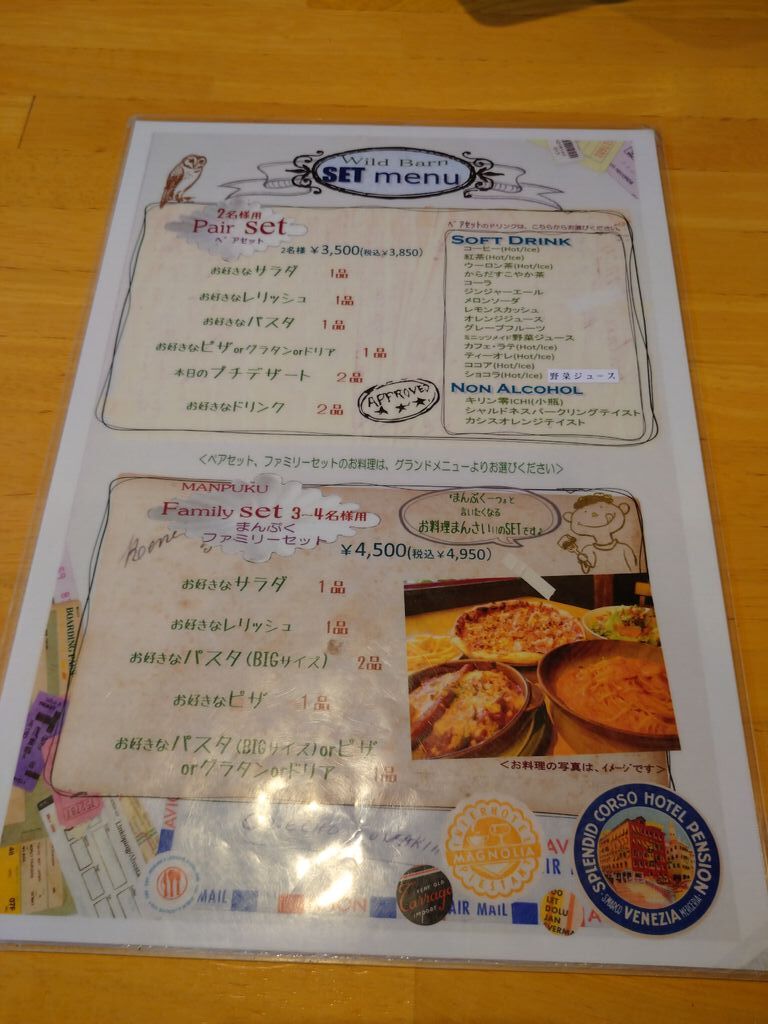 Wild Barn
SET menu
2名様用
Pair set
ペアセット
2名様 ¥3,500(税込¥3,850)
お好きなサラダ 1品
お好きなレリッシュ 1品
お好きなパスタ 1品
お好きなピザorグラタンorドリア 1品
本日のプチデザート 2品
お好きなドリンク 2品
APPROVED
ペアセットのドリンクは、こちらからお選びください
SOFT DRINK
コーヒー(Hot/Ice)
紅茶(Hot/Ice)
ウーロン茶(Hot/Ice)
からだすこやか茶
コーラ
ジンジャーエール
メロンソーダ
レモンスカッシュ
オレンジジュース
グレープフルーツ
ミニッツメイド野菜ジュース
カフェ・ラテ(Hot/Ice)
ティーオレ(Hot/Ice)
ココア(Hot/Ice)
ショコラ(Hot/Ice) 野菜ジュース
NON ALCOHOL
キリン零ICHI(小瓶)
シャルドネスパークリングテイスト
カシスオレンジテイスト
<ペアセット、ファミリーセットのお料理は、グランドメニューよりお選びください>
MANPUKU
Family set 3-4名様用
まんぷく
ファミリーセット
¥4,500(税込¥4,950)
まんぷく一つぁと
言いたくなる
お料理まんさい!!のSETです♪
お好きなサラダ 1品
お好きなレリッシュ 1品
お好きなパスタ(BIGサイズ) 2品
お好きなピザ 1品
お好きなパスタ(BIGサイズ)orピザ
orグラタンorドリア 1品
<お料理の写真は、イメージです>
BOARDING PASS
MAGNOLIA
SPLENDID CORSO HOTEL PENSION
S.MARCO VENEZIA MERCERIA
VERY OLD
IMPORT
MAIL
AIR MAIL